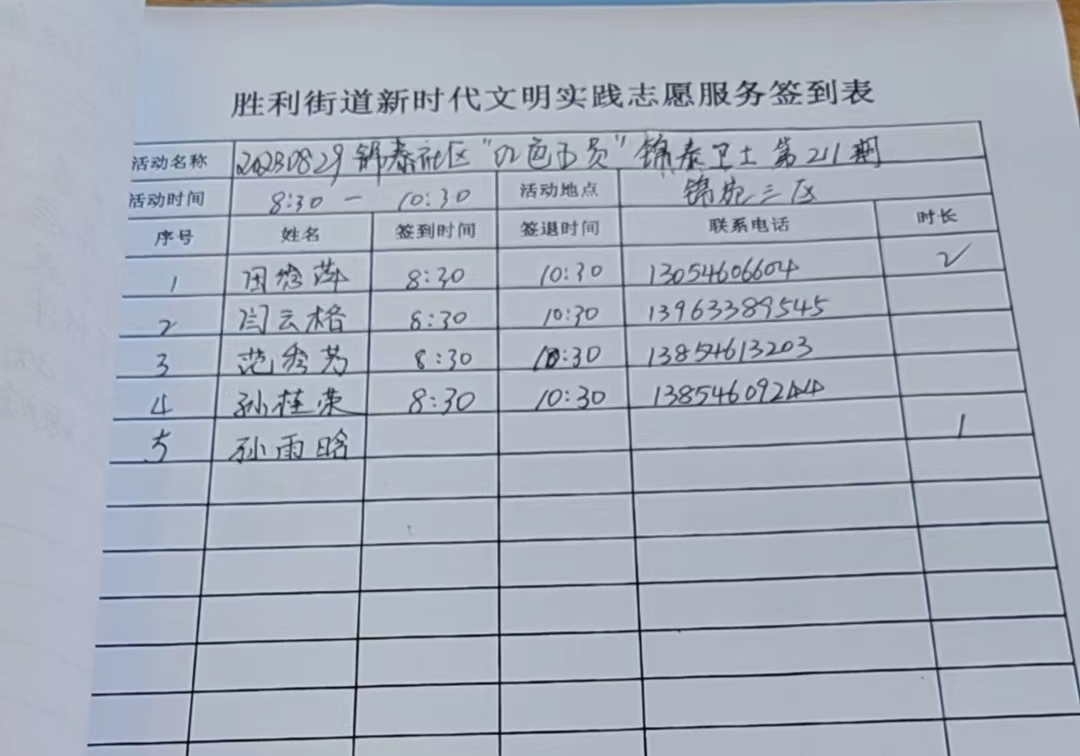 胜利街道新时代文明实践志愿服务签到表
活动名称 20230829 锦泰社区“红色网员”锦泰卫士 第211期
活动时间 8:30 — 10:30 活动地点 锦苑三区
序号 姓名 签到时间 签退时间 联系电话 时长
1 田 萍 8:30 10:30 13054606604 2
2 闫云格 8:30 10:30 13963389545
3 范秀芳 8:30 10:30 13854613203
4 孙桂荣 8:30 10:30 13854609244
5 孙雨晗 1